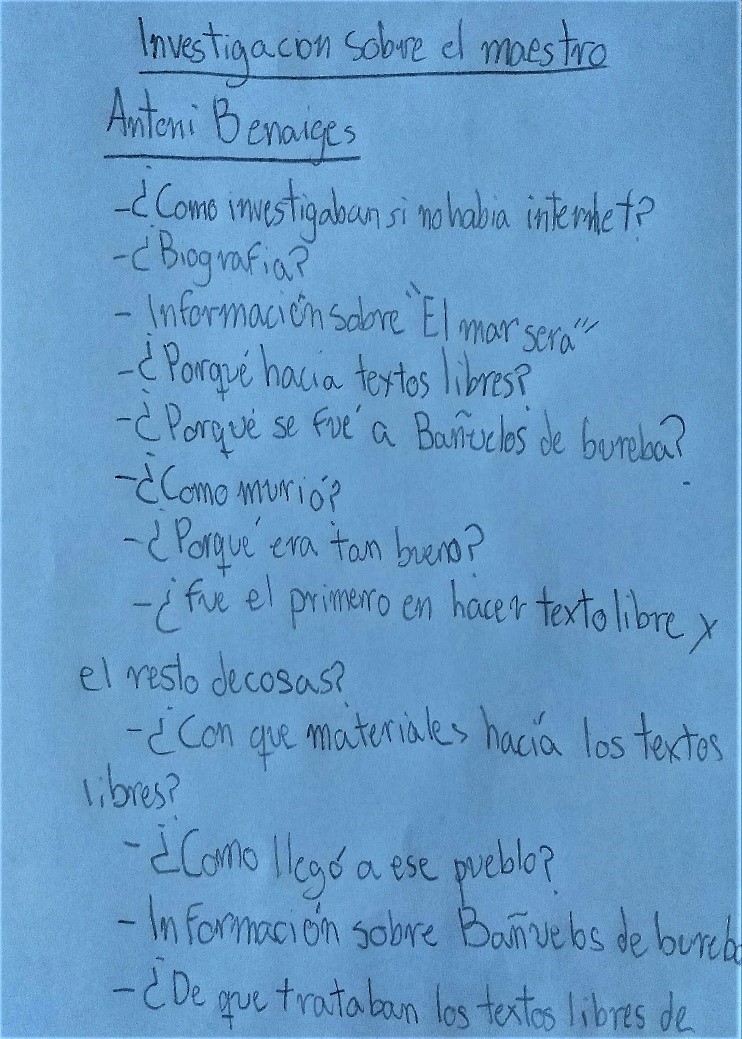 Investigacion sobre el maestro
Antoni Benaiges
-¿Como investigaban si no habia internet?
-¿Biografia?
- Información sobre "El mar sera"
-¿Porqué hacia textos libres?
-¿Porqué se fué a Bañuelos de bureba?
-¿Como murió?
-¿Porqué era tan bueno?
-¿fue el primero en hacer texto libre y
el resto de cosas?
-¿Con que materiales hacía los textos
libres?
-¿Como llegó a ese pueblo?
- Información sobre Bañuelos de bureba
-¿De que trataban los textos libres de